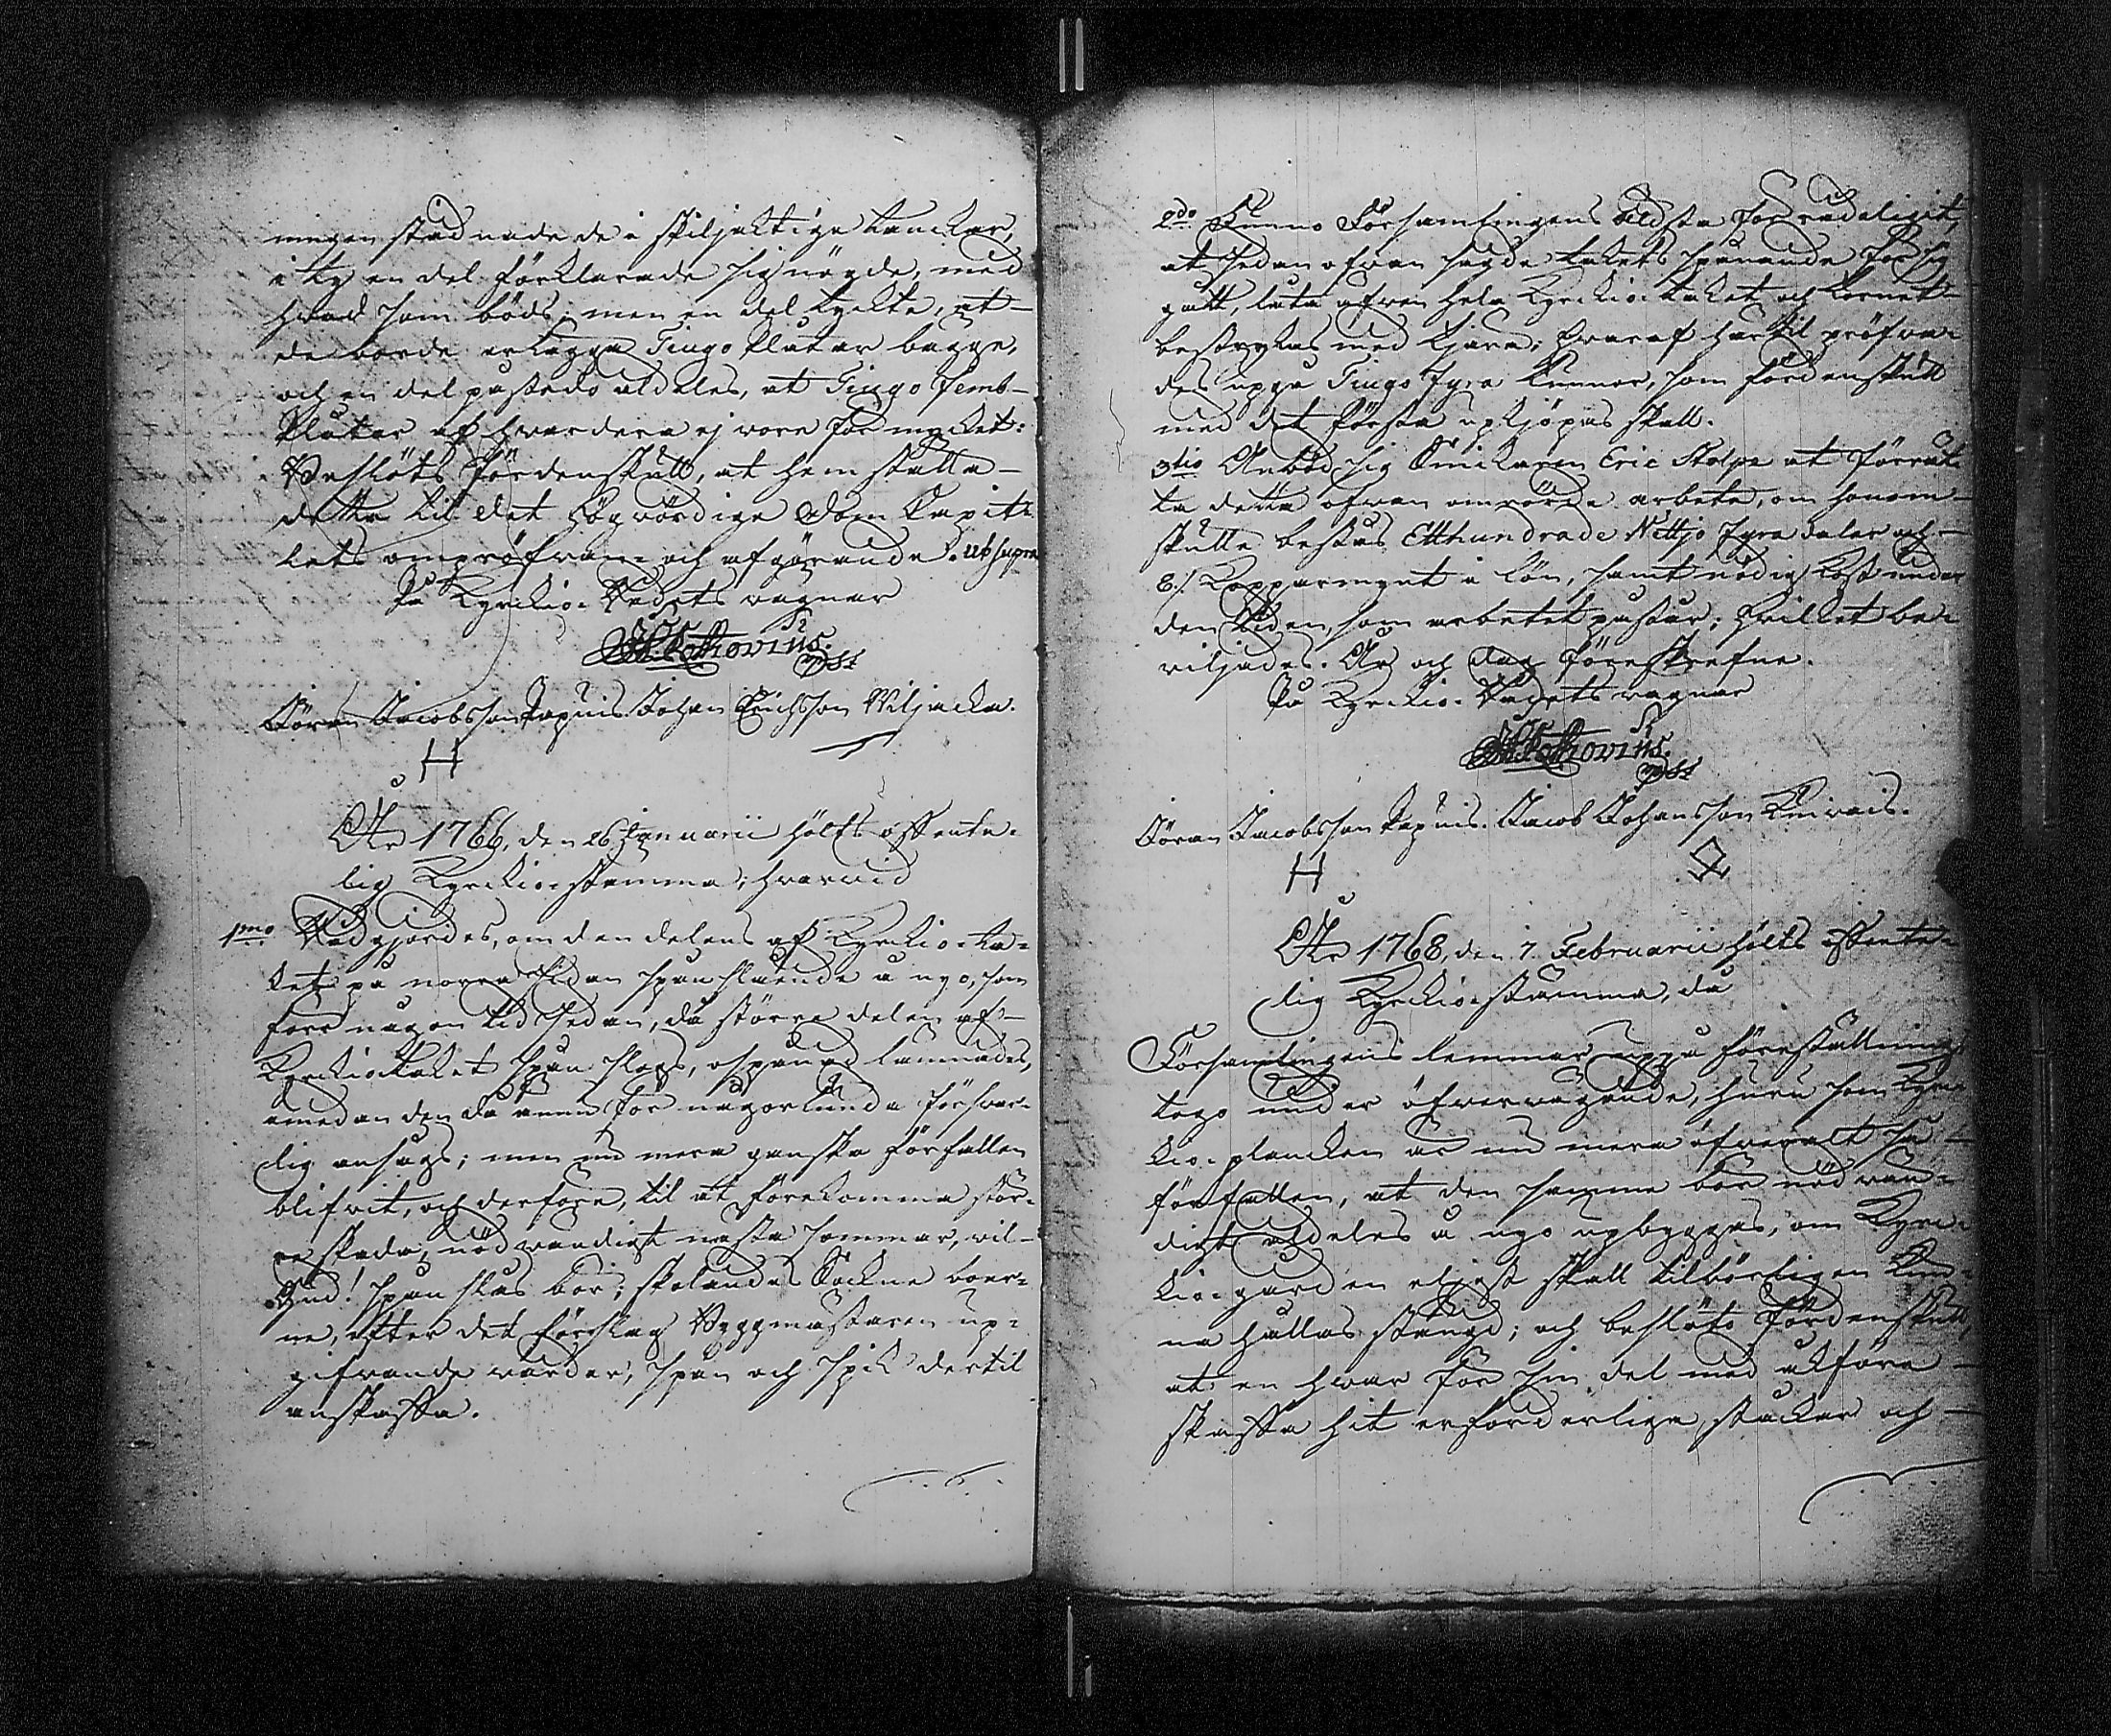 ningen stadnade de i skiljaktige tanckar,
i ty en del förklarade sig nögde, med
hvad som böds; men en del tyckte, at
de borde erlägga Tiugo Plåtar bägge,
och en del påstodo aldeles, at Tiugo femb
Plåtar af hvardera ej vore för mycket:
Beslöts fördenskull, at hemställa
detta til det Högvördige Dom Capit-
lets ompröfvan- och afgörande. Ut supra
På Kyrckio-Rådets vägnar
Jöran Jacobsson Papuis. Johan Erichsson Viljacka.
H
År 1766, den 26 Januarii hölts offente-
lig Kyrckiostämma; hvarvid
1mo Rådgjordes, om den delens af Kyrckio-ta-
ket på norra sidan spånslående å nyo, som
förr någon tid sedan, då större delen af
Kyrckiotaket spånslogs, ospånad lämnades,
emedan den då ännu för någorlunda försvar-
lig ansågs; men nu mera ganska förfallen
blifvit, och derföre, til at förekomma stör-
re skada, nödvändigt nästa sommar, vil
Gud! spånslås bör; skolandes Sockne boer-
ne, efter det förslag Byggmästaren up-
gifvande varder, spån och spik dertil
anskaffa.
2do Funno Församlingens äldsta för rådeligit,
at sedan ofvan sagde takets spånande för sig
gått, låta äfven hela Kyrckio-taket och tornet
bestrykas med tjära; hvaraf härtil pröfva-
des uppå Tiugo Fyra tunnor, som fördenskull
med det första upkjöpas skall.
3tio Anböd sig Snickaren Eric Stolpe at förrät-
ta detta ofvan omrörde arbete, om honom
skulle bestås Etthundrade Nettjo Fyra daler och
8./. Kopparmynt i lön, samt nödig kost under
den tiden, som arbetet påstår; hvilket be-
viljades. År och dag föreskrefne.
På Kyrckio-Rådets vägnar
Jöran Jacobsson Papuis. Jacob Johansson
H
År 1768, den 7. Februarii hölts offente-
lig Kyrckio-stämma, då
Församlingens lemmar uppå föreställning
togo under öfvervägande, huru som Kyrc-
kio-plancken är nu mera öfveralt så
förfallen, at den samme bör nödvän-
digt aldeles å nyo upbyggas, om Kyrc-
kio-gården eljest skall tilbörligen kun-
na hållas stängd; och beslöto fördenskull,
at en hvar för sin del med åkföre
skaffa hit erforderlige stäckar och